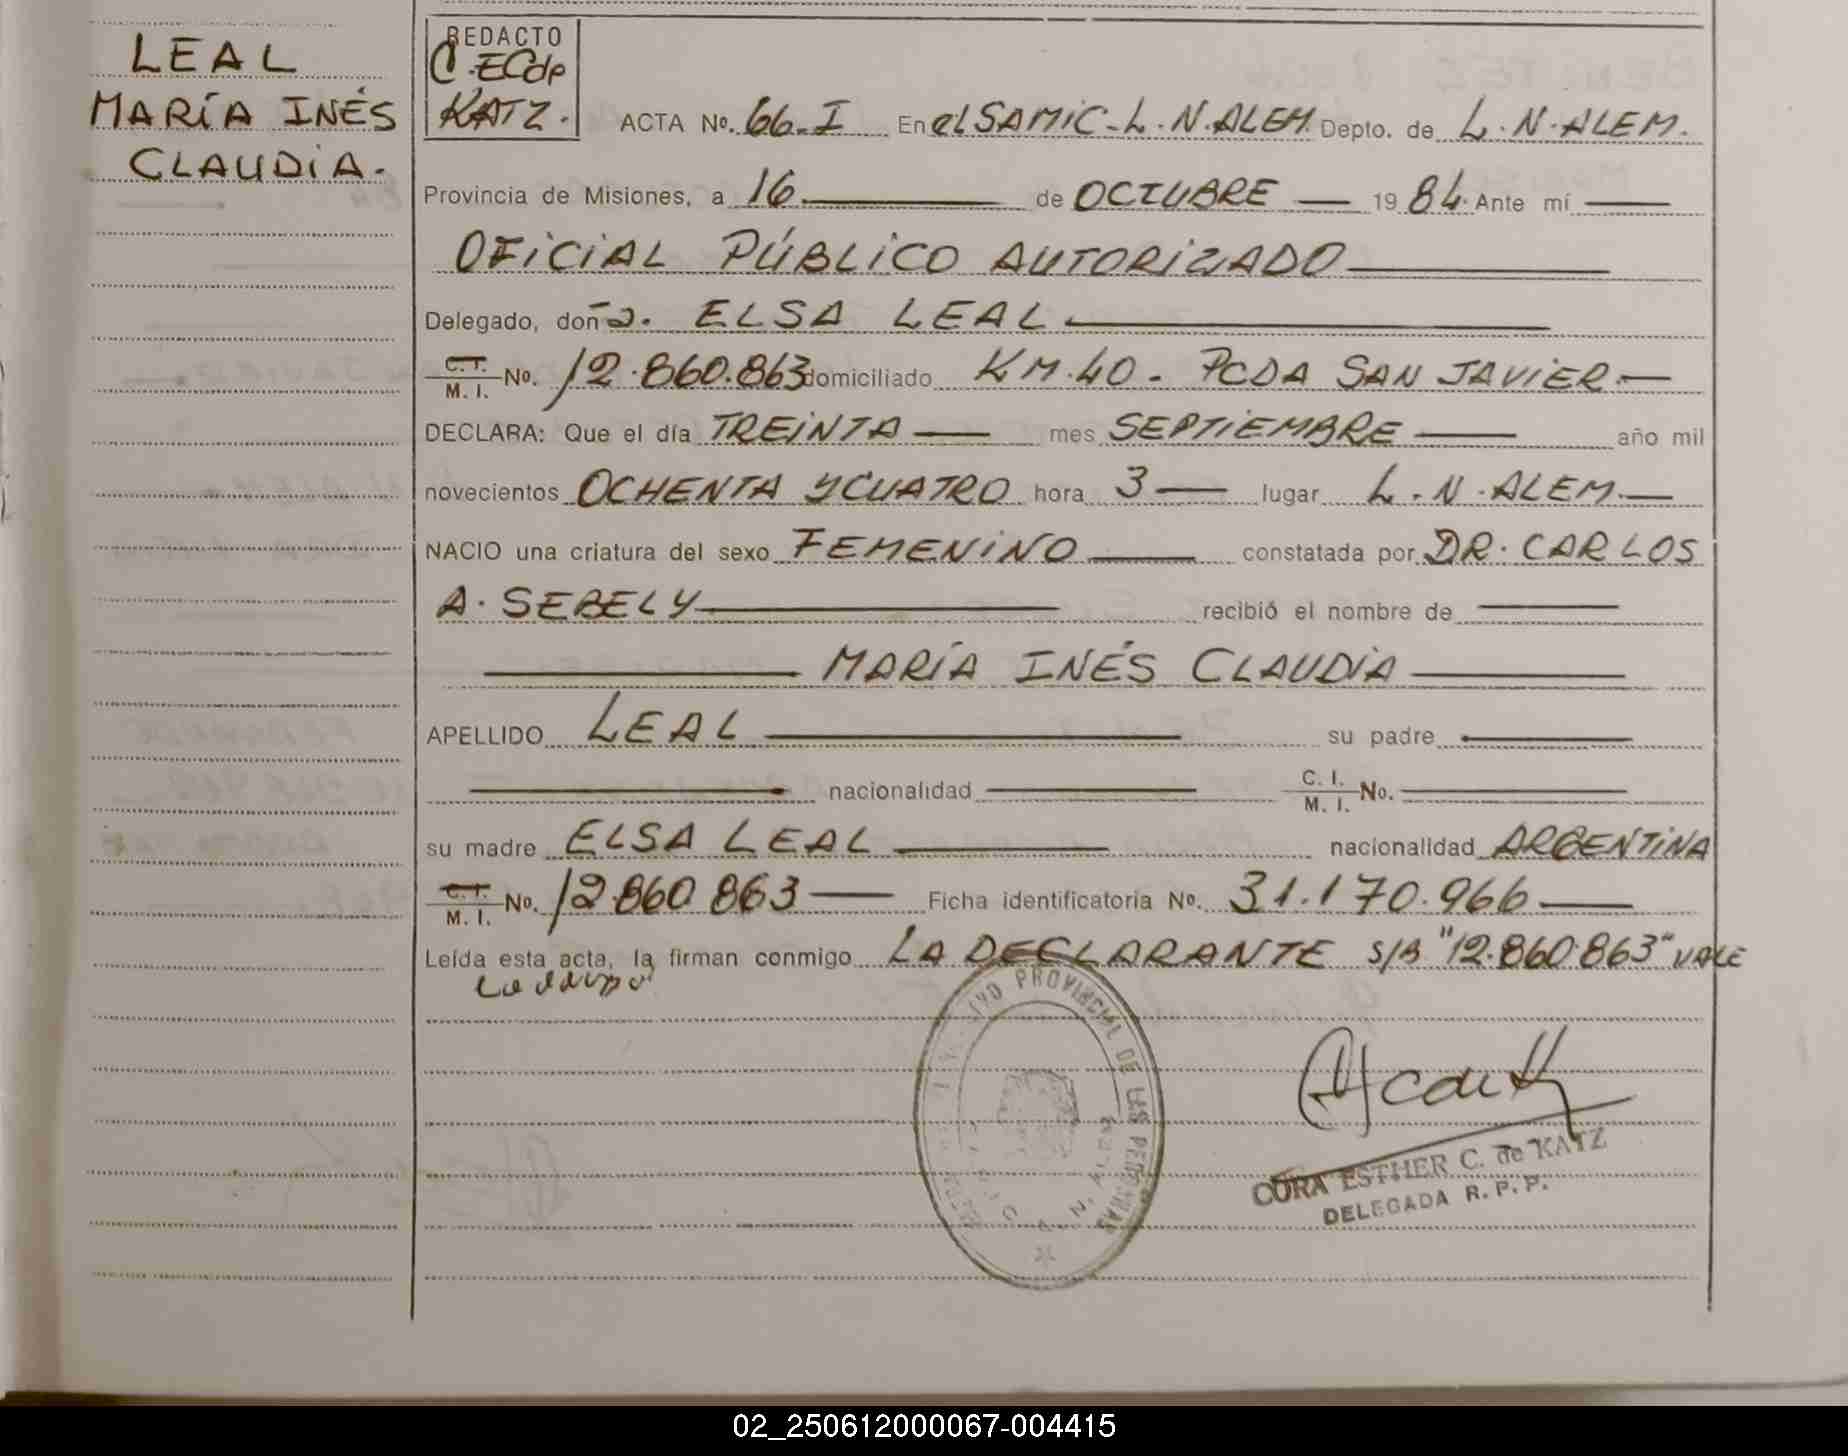 LEAL
MARÍA INÉS
CLAUDIA.
REDACTO
C.ECde
KATZ.
ACTA No. 66-I En el SAMIC-L.N.ALEM. Depto. de L.N.ALEM.
Provincia de Misiones, a 16 de OCTUBRE 1984. Ante mí
OFICIAL PÚBLICO AUTORIZADO
Delegado, doña. ELSA LEAL
C. I. M. I. No. 12.860.863 domiciliado KM.40. PCDA SAN JAVIER.
DECLARA: Que el día TREINTA mes SEPTIEMBRE año mil
novecientos OCHENTA Y CUATRO hora 3 lugar L.N.ALEM.
NACIO una criatura del sexo FEMENINO constatada por DR. CARLOS
A. SEBELY recibió el nombre de
MARÍA INÉS CLAUDIA
APELLIDO LEAL su padre
nacionalidad C. I. M. I. No.
su madre ELSA LEAL nacionalidad ARGENTINA
C. I. M. I. No. 12.860.863 Ficha identificatoria No. 31.170.966
Leída esta acta, la firman conmigo LA DECLARANTE S/B "12.860.863" VALE
PROVINCIAL DE LAS PERSONAS
CORA ESTHER C. de KATZ
DELEGADA R. P. P.
02_250612000067-004415